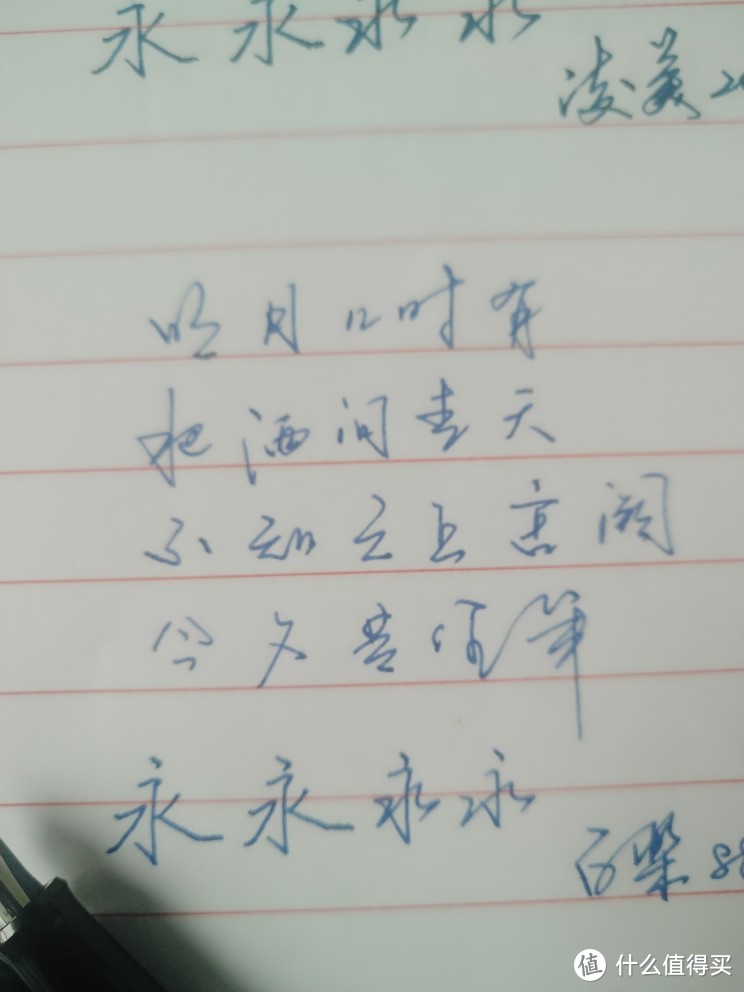 永永永永
凌美2
明月几时有
把酒问青天
不知天上宫阙
今夕是何年
永永永永
百乐88
值 什么值得买